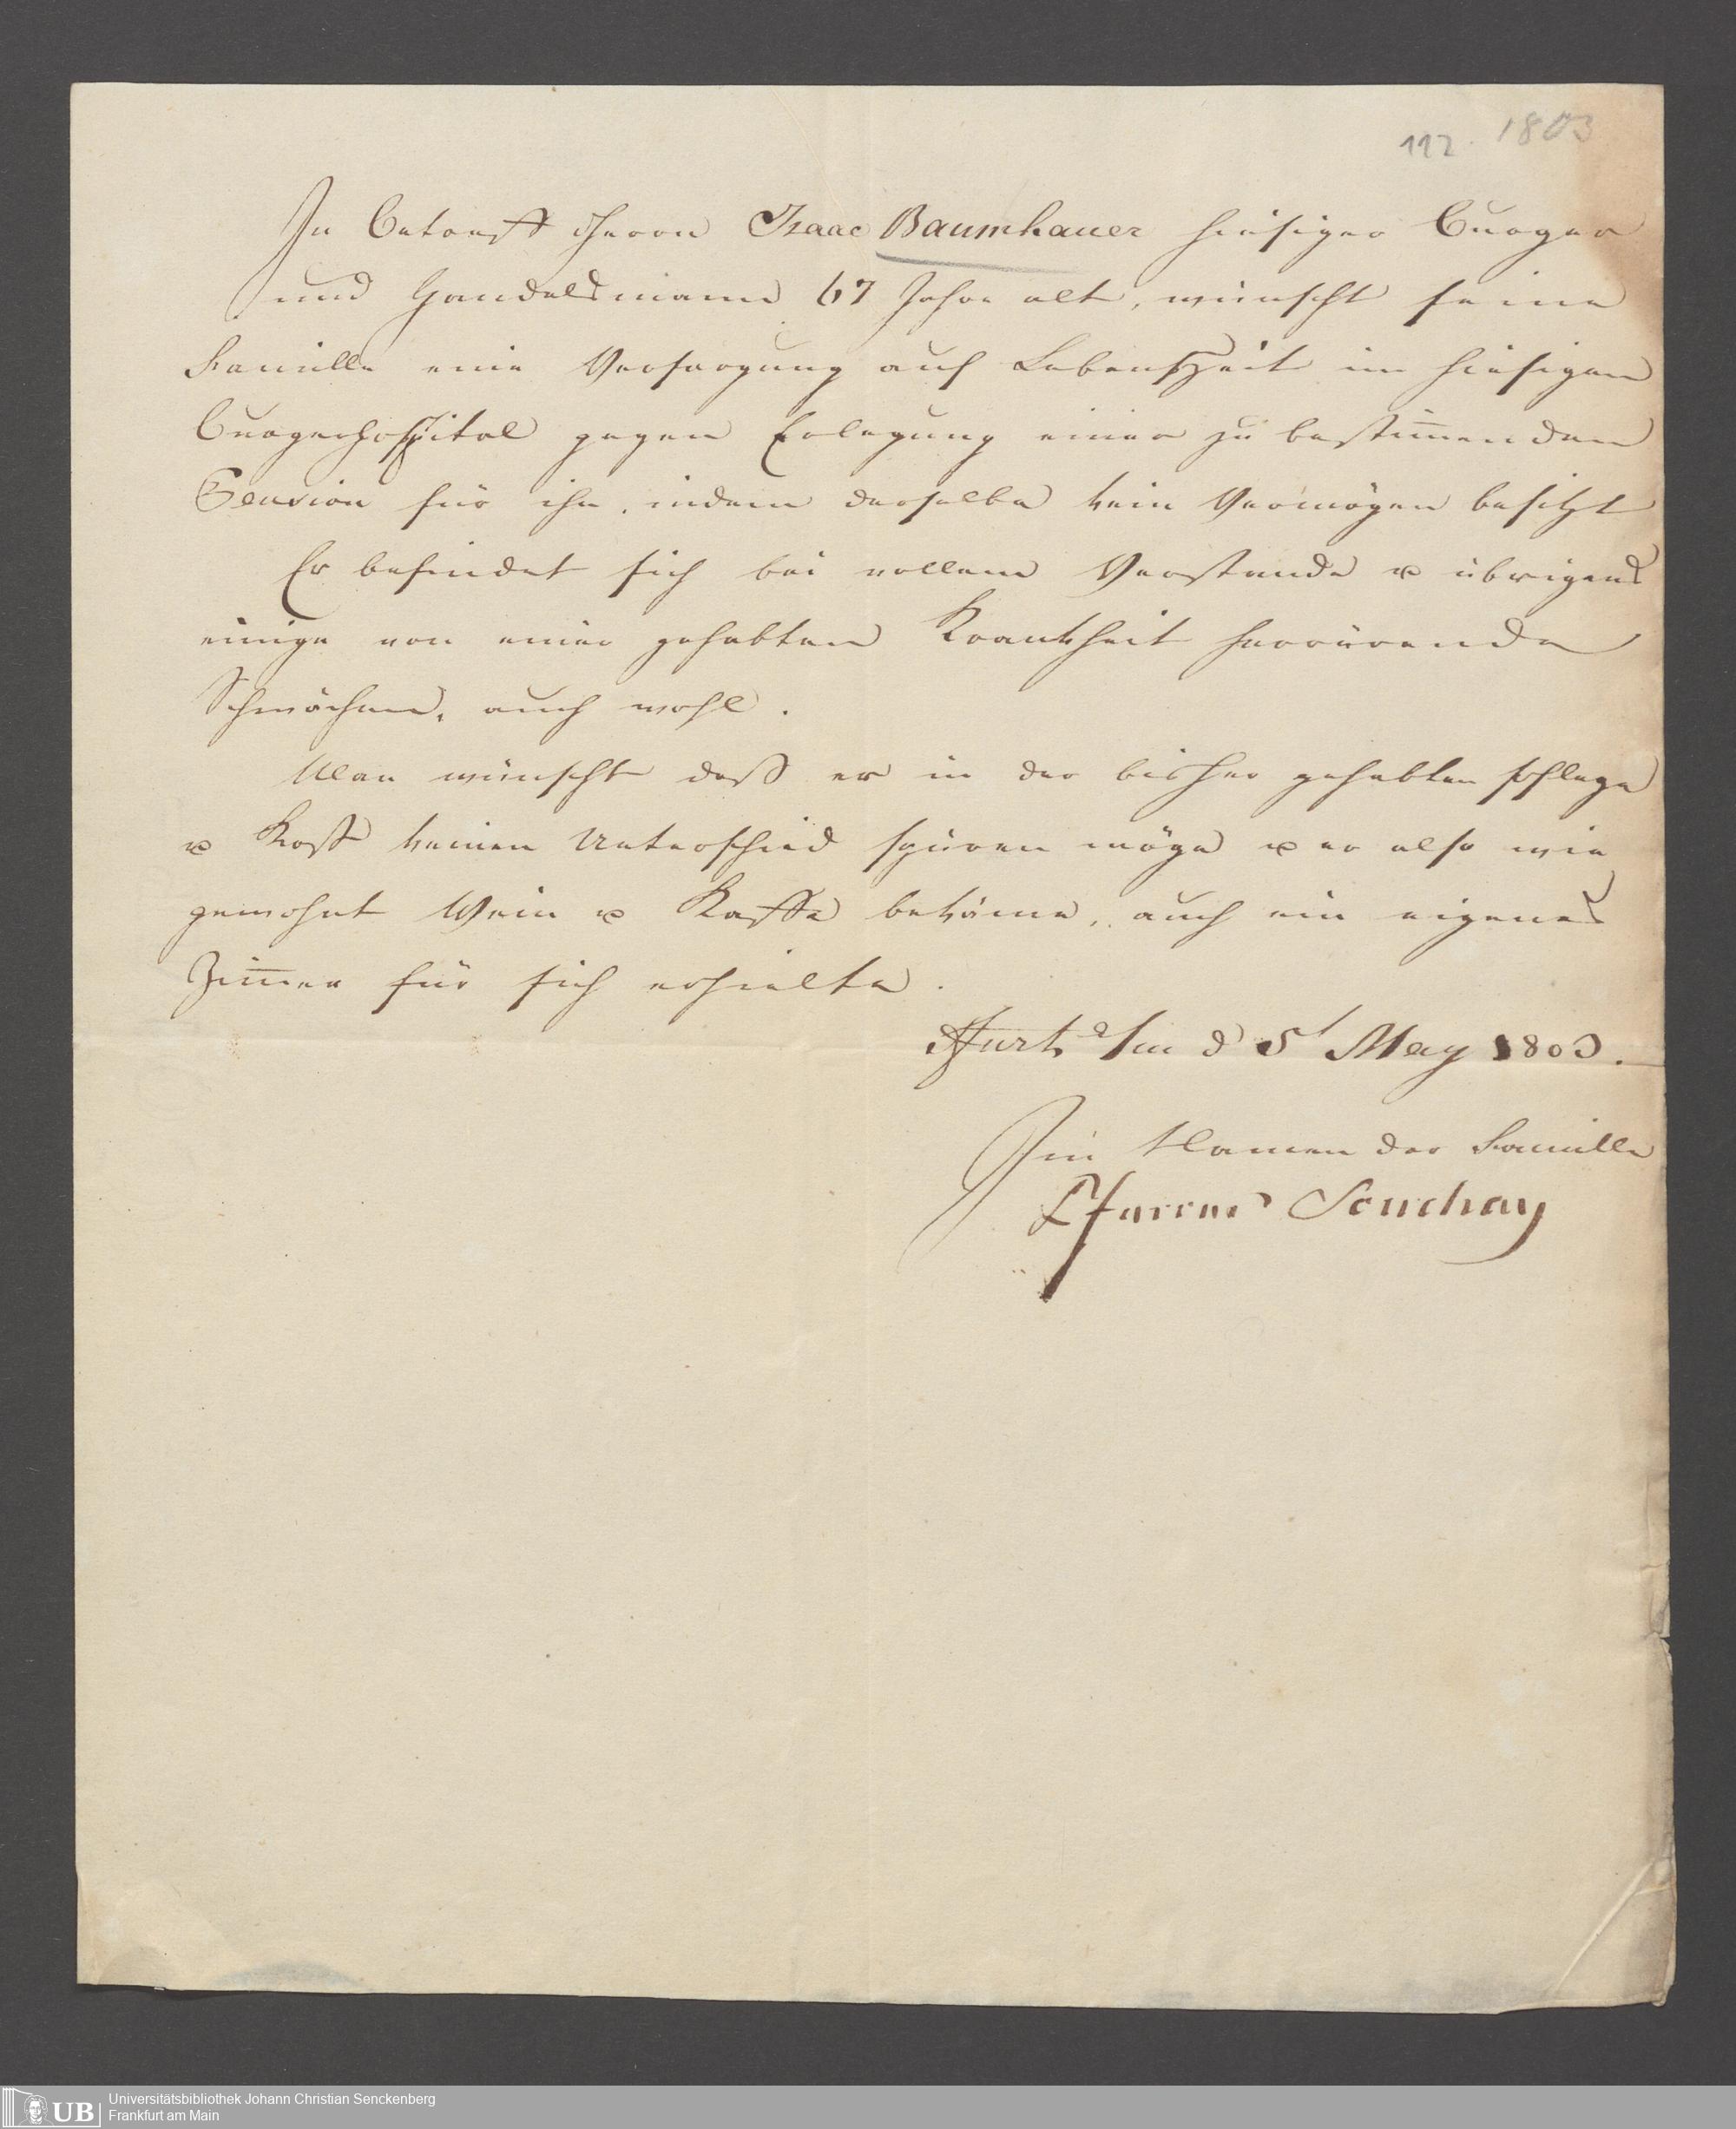 112. 1803
In betreff Herrn Isaac Baumhauer hiesiger burger
und Handelsmann 67 Jahre alt, wünscht seine
Famille eine Versorgung auf Lebenszeit im hiesigen
burgerhospital gegen Erlegung einer zu bestim̄enden
Pension für ihn, indem derselbe kein Vermögen besitzt
Er befindet sich bei vollem Verstande u übrigens
einige von einer gehabten Krankheit herrürende
Schwächen, auch wohl.
Man wünscht daß er in der bisher gehabten pflege
u Kost keinen Unterschied spüren möge u er also wie
gewohnt Wein u Kaffe bekäme, auch ein eigenes
Zim̄er für sich erhielte.
Ffurth a/m d 5t May 1803.
Im Namen der Famille
Pfarrer Souchay
Universitätsbibliothek Johann Christian Senckenberg
Frankfurt am Main
UB